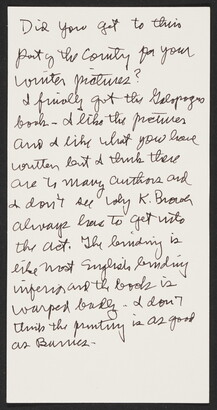 Did you get to this
part of the country for your
winter pictures?
I finally got the Galapagos
book - I like the pictures
and I like what you have
written but I think there
are to many authors and
I don't see why K. Brower
always has to get into
the act. The binding is
like most English binding
inferior and the book is
warped badly - I don't
think the printing is as good
as Barnes -